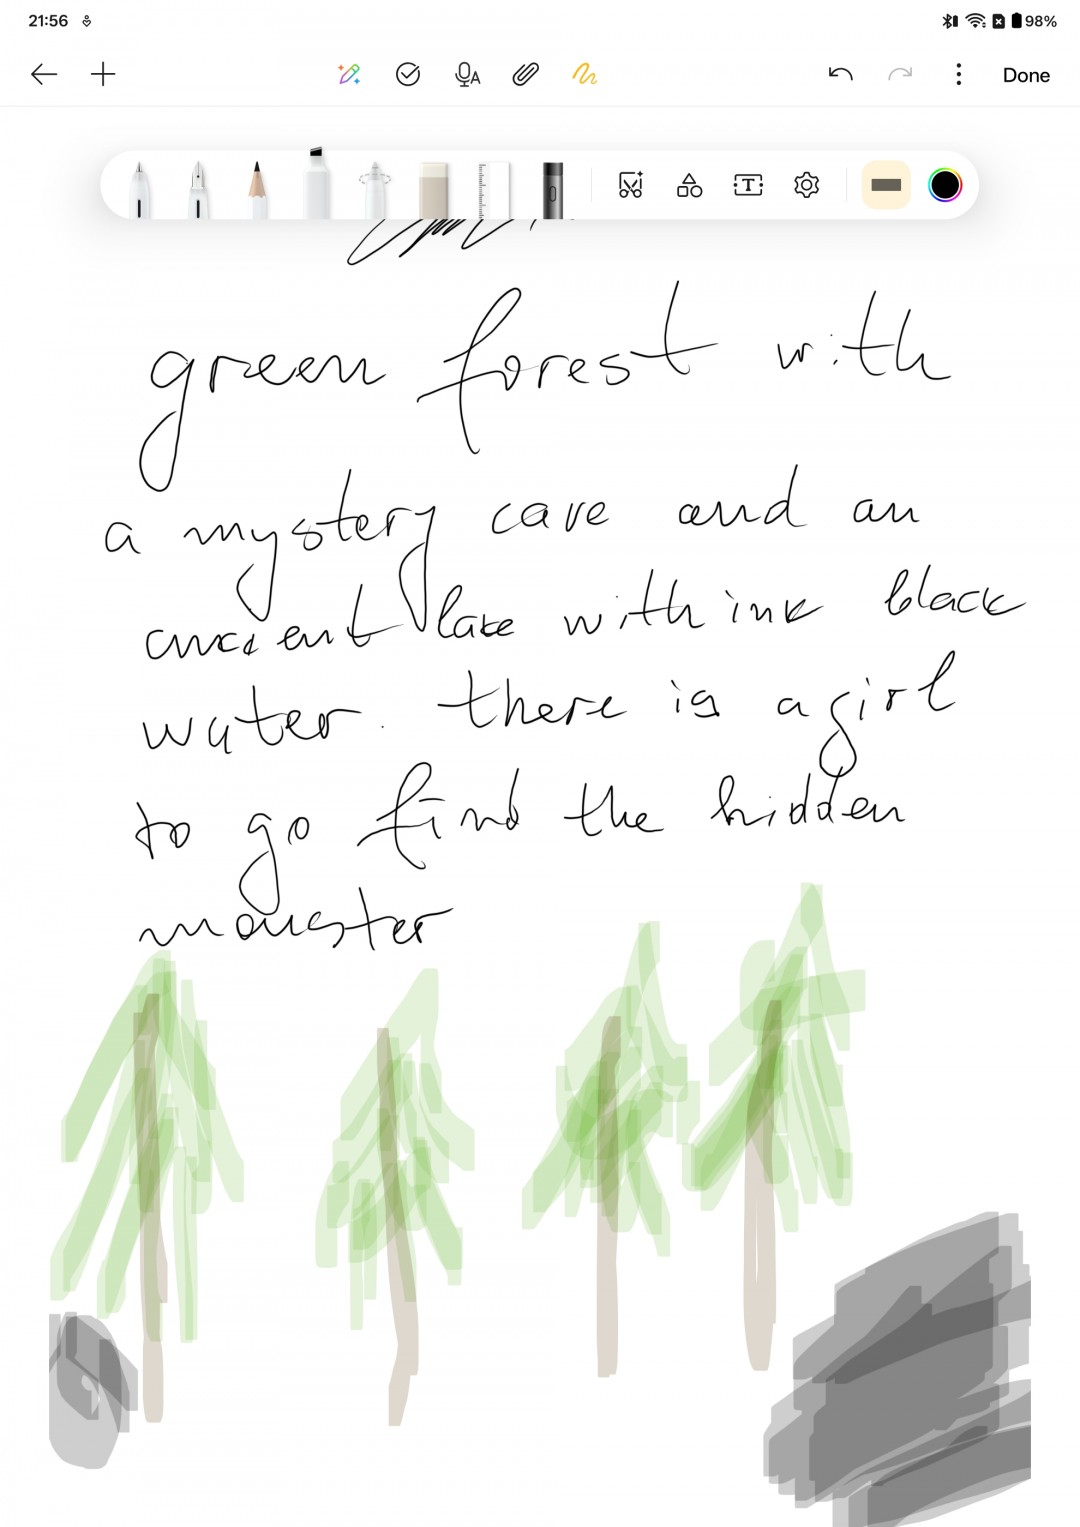 21:56 98%
Done
T
green forest with
a mystery cave and an
ancient lake with ink black
water. there is a girl
to go find the hidden
monster